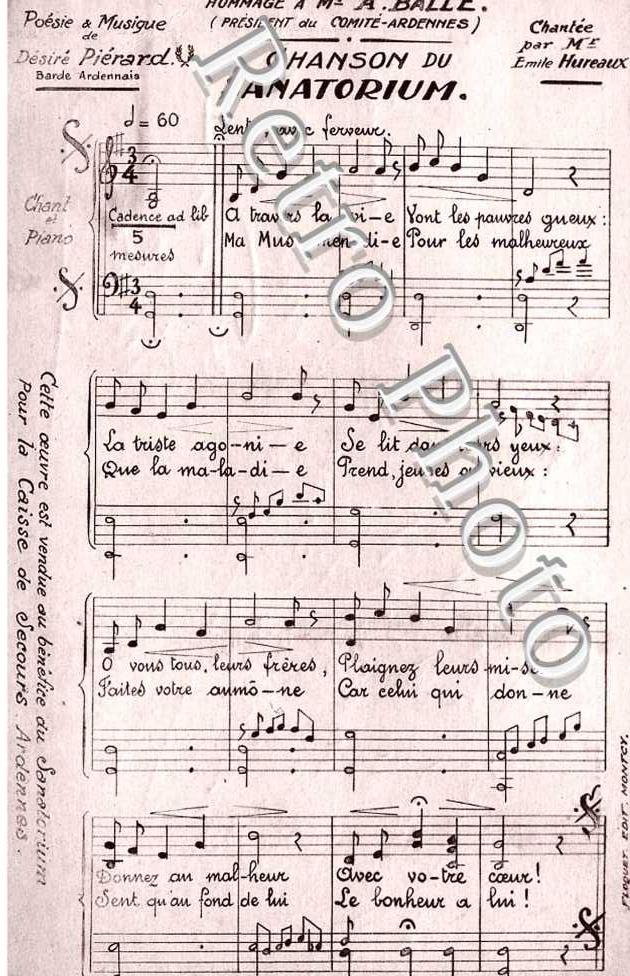 HOMMAGE À Mr A. BALLE.
(PRÉSIDENT du COMITÉ-ARDENNES)
Poésie & Musique
de
Désiré Piérard.
Barde Ardennais
CHANSON DU
SANATORIUM.
Chantée
par Me
Emile Hureaux
= 60
Lent, avec ferveur.
Chant
et
Piano
3
4
Cadence ad lib
5
mesures
A travers la vi-e Vont les pauvres gueux:
Ma Mus men-di-e Pour les malheureux
3
4
La triste ago-ni-e Se lit yeux:
Que la ma-la-di-e Prend, jeunes ou vieux:
O vous tous, leurs frères, Plaignez leurs mi-sè
Faites votre aumô-ne Car celui qui don-ne
Donnez au mal-heur Avec vo-tre cœur!
Sent qu'au fond de lui Le bonheur a lui!
Cette œuvre est vendue au bénéfice du Sanatorium
Pour la Caisse de Secours Ardennes.
FLOQUET. EDIT. MONTCY.
Retro Photo